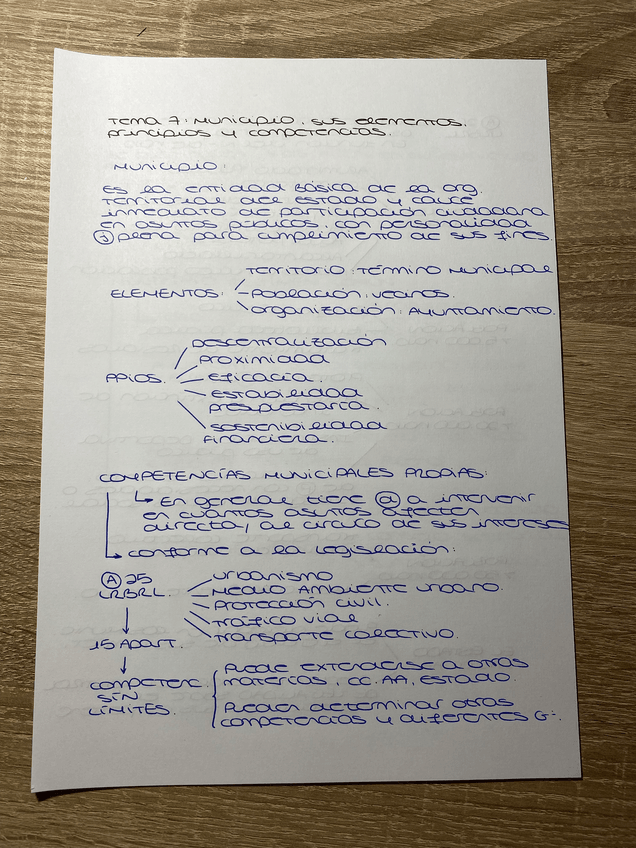 TEMA 7: MUNICIPIO, SUS ELEMENTOS,
PRINCIPIOS Y COMPETENCIAS.
MUNICIPIO:
ES LA ENTIDAD BÁSICA DE LA ORG.
TERRITORIAL DEL ESTADO Y CAUCE
INMEDIATO DE PARTICIPACIÓN CIUDADANA
EN ASUNTOS PÚBLICOS, CON PERSONALIDAD
Ⓙ PLENA PARA CUMPLIMIENTO DE SUS FINES.
TERRITORIO: TÉRMINO MUNICIPAL
ELEMENTOS: POBLACIÓN: VECINOS.
ORGANIZACIÓN: AYUNTAMIENTO.
DESCENTRALIZACIÓN
PROXIMIDAD
PPIOS. EFICACIA.
ESTABILIDAD
PRESUPUESTARIA.
SOSTENIBILIDAD
FINANCIERA.
COMPETENCIAS MUNICIPALES PROPIAS:
EN GENERAL TIENE ⓓ A INTERVENIR
EN CUANTOS ASUNTOS AFECTEN
DIRECTA/ AL CIRCULO DE SUS INTERESES
CONFORME A LA LEGISLACIÓN:
Ⓐ 25 URBANISMO
LRBRL. MEDIO AMBIENTE URBANO.
PROTECCIÓN CIVIL.
TRÁFICO VIAL
15 APART. TRANSPORTE COLECTIVO.
COMPETENC. PUEDE EXTENDERSE A OTRAS
SIN MATERIAS, CC.AA, ESTADO.
LÍMITES. PUEDEN DETERMINAR OTRAS
COMPETENCIAS Y DIFERENTES